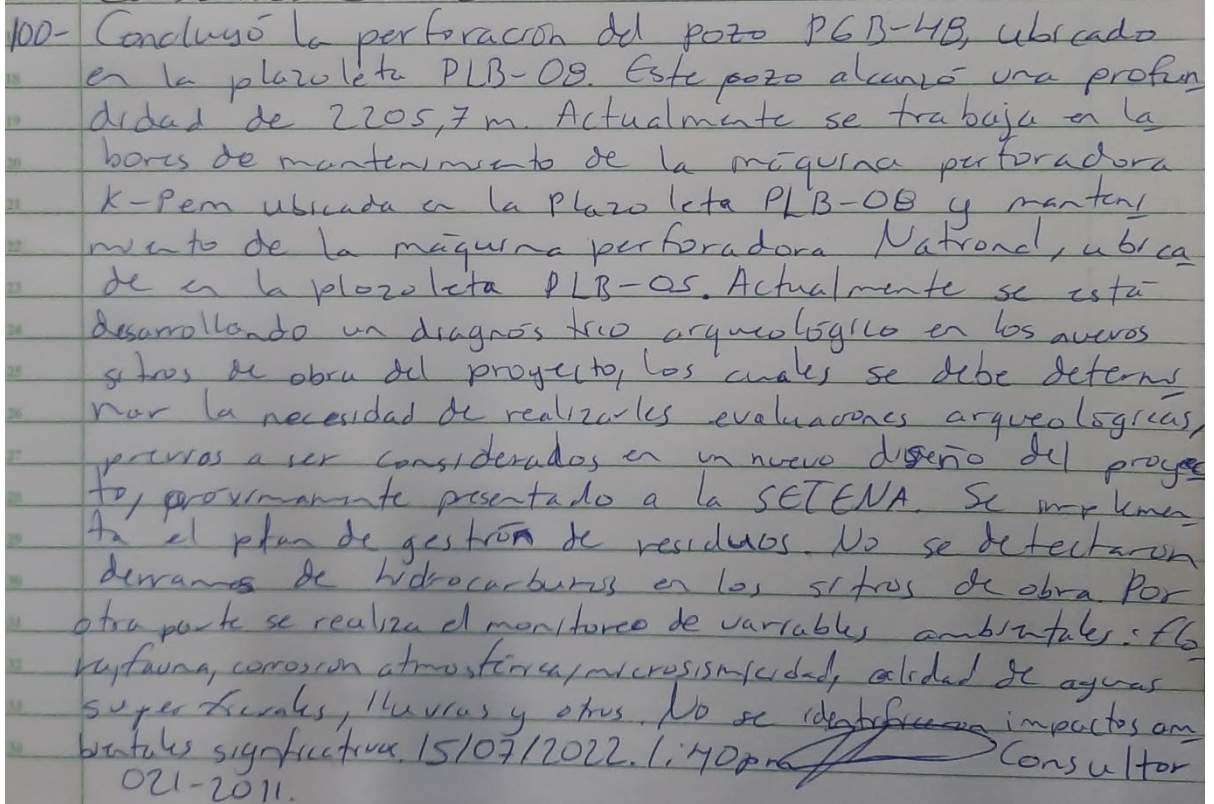 100- Concluyó la perforación del pozo PGB-48, ubicado
en la plazoleta PLB-08. Este pozo alcanzó una profun
didad de 2205,7 m. Actualmente se trabaja en la
bores de mantenimiento de la máquina perforadora
K-Pem ubicada en la Plazoleta PLB-08 y manteni
miento de la máquina perforadora National, ubica
da en la plazoleta PLB-05. Actualmente se está
desarrollando un diagnóstico arqueológico en los nuevos
sitios de obra del proyecto, los cuales se debe determi
nar la necesidad de realizarles evaluaciones arqueológicas,
previos a ser considerados en un nuevo diseño del proyec
to, próximamente presentado a la SETENA. Se implemen
ta el plan de gestión de residuos. No se detectaron
derrames de hidrocarburos en los sitios de obra. Por
otra parte se realiza el monitoreo de variables ambientales: flo
ra, fauna, corrosión atmosférica, microsismicidad, calidad de aguas
superficiales, lluvias y otros. No se identificaron impactos am
bientales significativos. 15/07/2022. 1:40pm Consultor
021-2011.